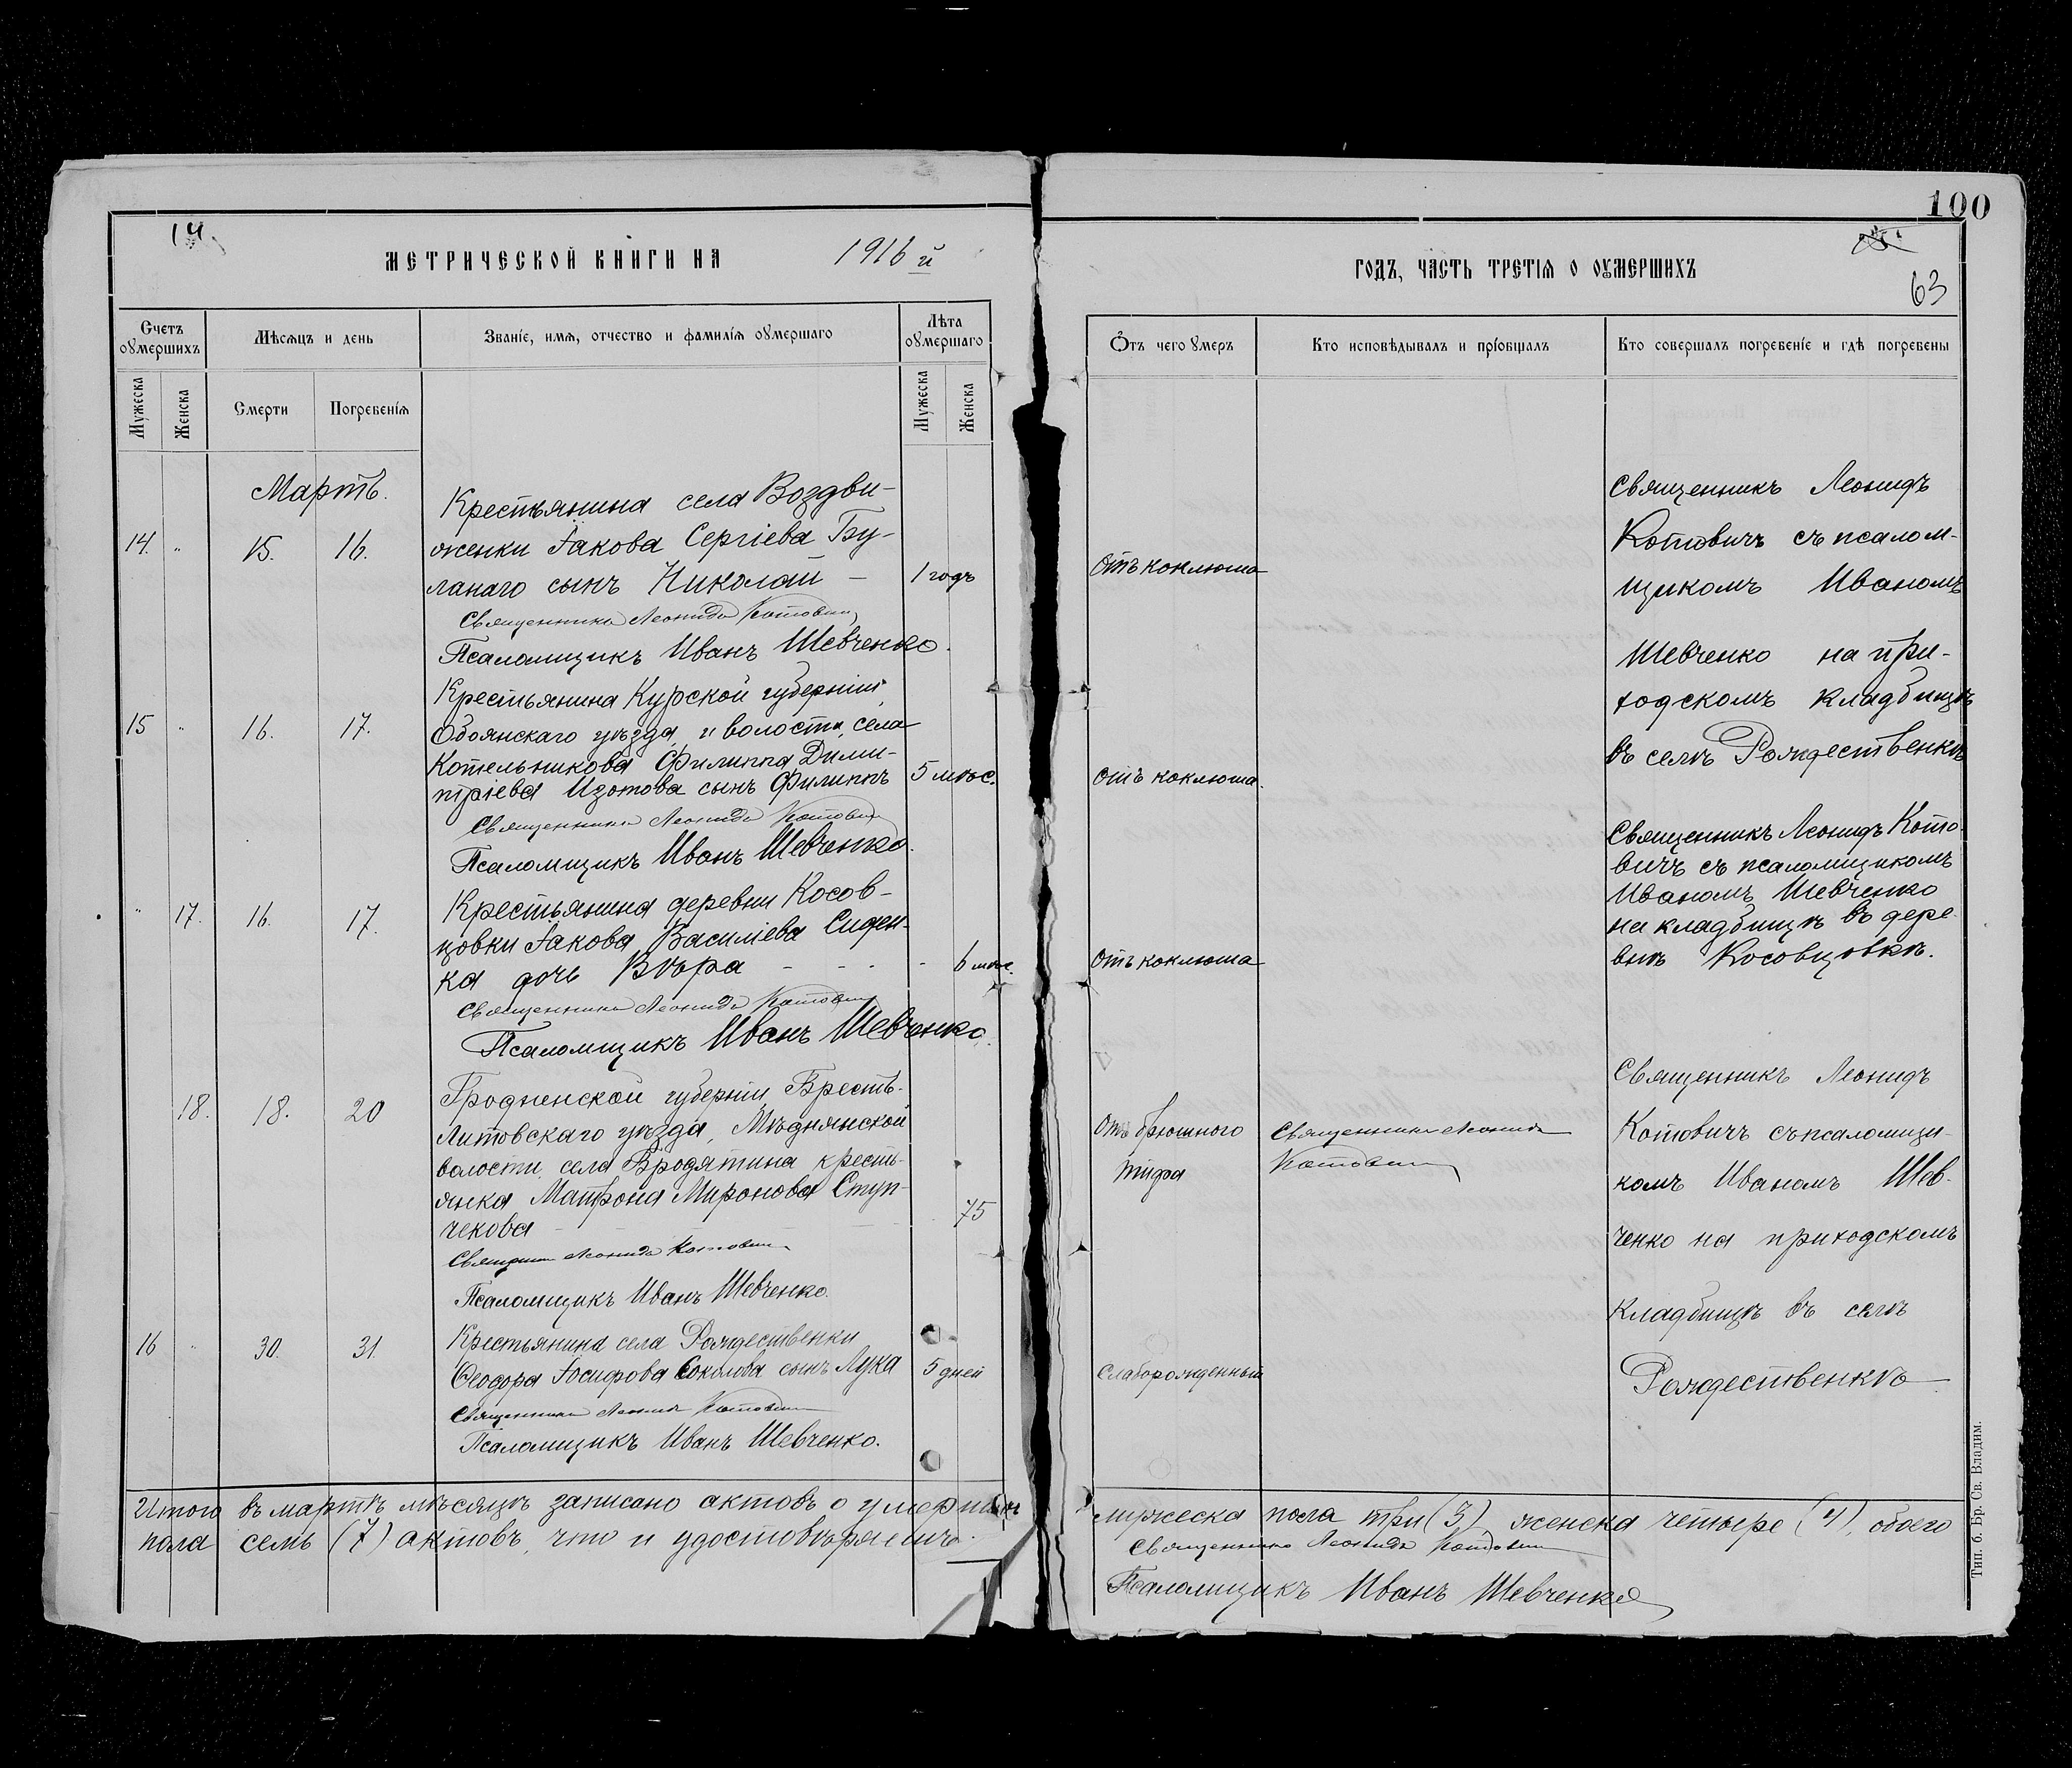 100
14
МЕТРИЧЕСКОЙ КНИГИ НА 1916 й
ГОДЪ, ЧАСТЬ ТРЕТІѦ О ОУМЕРШИХЪ
63
Счетъ оумершихъ
Мѣсѧцъ и день
Званіе, имѧ, отчество и фамиліѧ оумершаго
Лѣта оумершаго
Ѿтъ чего умеръ
Кто исповѣдывалъ и пріобщалъ
Кто совершалъ погребеніе и гдѣ погребены
Мужеска
Женска
Смерти
Погребеніѧ
Мужеска
Женска
Мартъ.
14. " 15. 16.
Крестьянина села Воздви-
женки Іакова Сергіева Бу-
ланаго сынъ Николай –
1 годъ
Отъ коклюша
Священникъ Леонидъ Котовичъ
Псаломщикъ Иванъ Шевченко.
15 " 16. 17.
Крестьянина Курской губерніи
Обоянскаго уѣзда и волости, села
Котельникова Филиппа Дими-
тріева Изотова сынъ Филиппъ
5 мѣс.
Отъ коклюша.
Священникъ Леонидъ Котовичъ
Псаломщикъ Иванъ Шевченко.
Священникъ Леонидъ
Котовичъ съ псалом-
щикомъ Иваномъ
Шевченко на при-
ходскомъ кладбищѣ
въ селѣ Рождественкѣ
" 17. 16. 17.
Крестьянина деревни Косов-
цовки Іакова Василіева Сиден-
ка дочь Вѣра - - - -
6 мѣс.
Отъ коклюша
Священникъ Леонидъ Котовичъ
Псаломщикъ Иванъ Шевченко.
Священникъ Леонидъ Кото-
вичъ съ псаломщикомъ
Иваномъ Шевченко
на кладбищѣ въ дере-
внѣ Косовцовкѣ.
18. 18. 20
Гродненской губерніи, Брестъ-
Литовскаго уѣзда, Мѣднянской
волости, села Бродятина кресть-
янка Матрона Миронова Ступ-
чекова
75
Отъ брюшного
тифа
Священникъ Леонидъ
Котовичъ
Священникъ Леонидъ Котовичъ
Псаломщикъ Иванъ Шевченко.
16 " 30. 31.
Крестьянина села Рождественки
Ѳеодора Іосифова Соколова сынъ Лука
5 дней
Слаборожденный
Священникъ Леонидъ Котовичъ
Псаломщикъ Иванъ Шевченко.
Священникъ Леонидъ
Котовичъ съ псаломщи-
комъ Иваномъ Шев-
ченко на приходскомъ
кладбищѣ въ селѣ
Рождественкѣ
Итого въ мартѣ мѣсяцѣ записано актовъ о умершихъ мужеска пола три (3), женска четыре (4), обоего
пола семь (7) актовъ, что и удостовѣряемъ.
Священникъ Леонидъ Котовичъ
Псаломщикъ Иванъ Шевченко
Тип. б. Бр. Св. Владим.